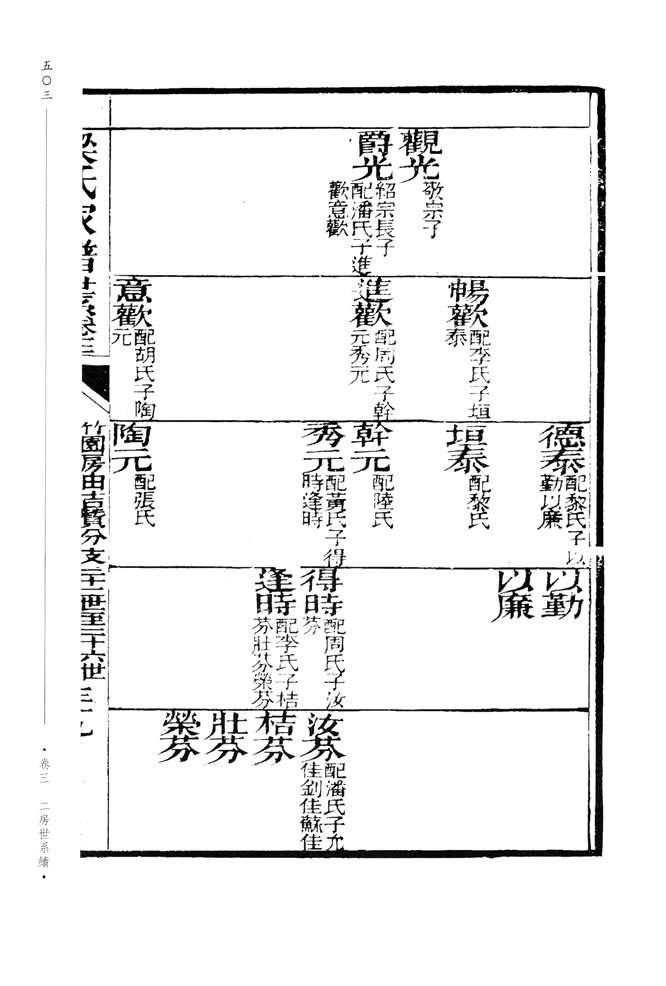 觀光
敬宗子
爵光
紹宗長子
配潘氏子進
歡意歡
暢歡
配李氏子垣
泰
進歡
配周氏子幹
元秀元
意歡
配胡氏子陶
元
德泰
配黎氏子以
勤以廉
垣泰
配黎氏
幹元
配陸氏
秀元
配黃氏子得
時逢時
陶元
配張氏
以勤
以廉
得時
配周氏子汝
芬
逢時
配李氏子桔
芬壯芬榮芬
汝芬
配潘氏子允
佳釗佳蘇佳
桔芬
壯芬
榮芬
梁氏家譜世系卷三
竹園房由吉賢分支二十二世至二十六世
五〇三
·卷三 二房世系續·